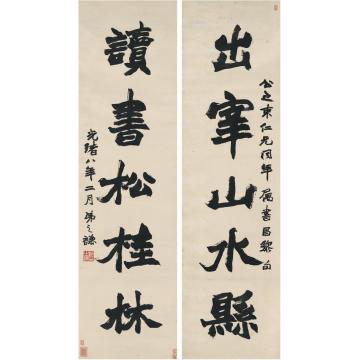 出宰山水縣
公之東仁兄同年屬書昌黎句
讀書松桂林
光緒八年二月弟之謙